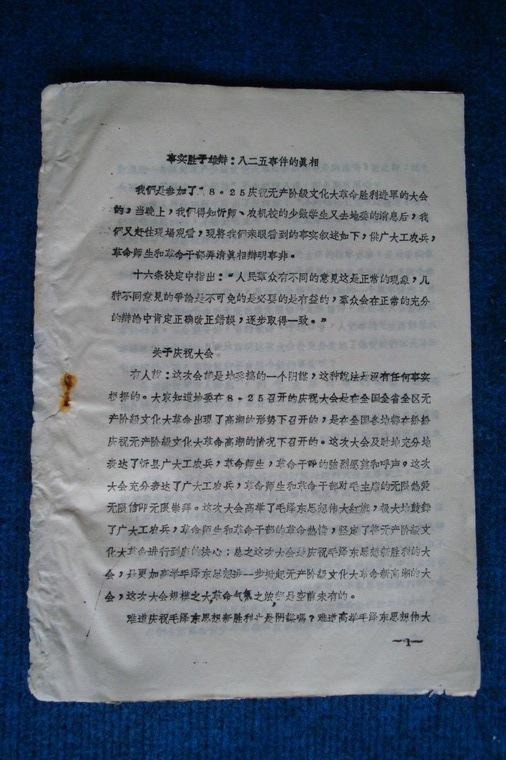 事实胜于雄辩：八二五事件的真相
我们是参加了"8·25庆祝无产阶级文化大革命胜利进军的大会
的，当晚上，我们得知忻师、农机校的少数学生又去地委的消息后，我
们又赶往现场观看，现将我们亲眼看到的事实叙述如下，供广大工农兵，
革命师生和革命干部弄清真相辩明事非。
十六条决定中指出："人民群众有不同的意见这是正常的现象，几
种不同意见的争论是不可免的是必要的是有益的，群众会在正常的充分
的辩论中肯定正确改正错误，逐步取得一致。"
关于庆祝大会
有人说：这次会就是地委搞的一个阴谋，这种说法是没有任何事实
根据的。大家知道地委在8·25召开的庆祝大会是在全国全省全区无
产阶级文化大革命出现了高潮的形势下召开的，是在全国各地都在纷纷
庆祝无产阶级文化大革命高潮的情况下召开的。这次大会及时地充分地
表达了忻县广大工农兵，革命师生，革命干部的强烈愿望和呼声。这次
大会充分表达了广大工农兵，革命师生和革命干部对毛主席的无限热爱
无限信仰无限崇拜。这次大会高举了毛泽东思想伟大红旗，极大地鼓舞
了广大工农兵，革命师生和革命干部的革命热情，坚定了将无产阶级文
化大革命进行到底的决心；总之这次大会是庆祝毛泽东思想新胜利的大
会，是更加高举毛泽东思想进一步掀起无产阶级文化大革命新高潮的大
会，这次大会规模之大革命气氛之浓都是空前未有的。
难道庆祝毛泽东思想新胜利也是阴谋吗？难道高举毛泽东思想伟大
—1—